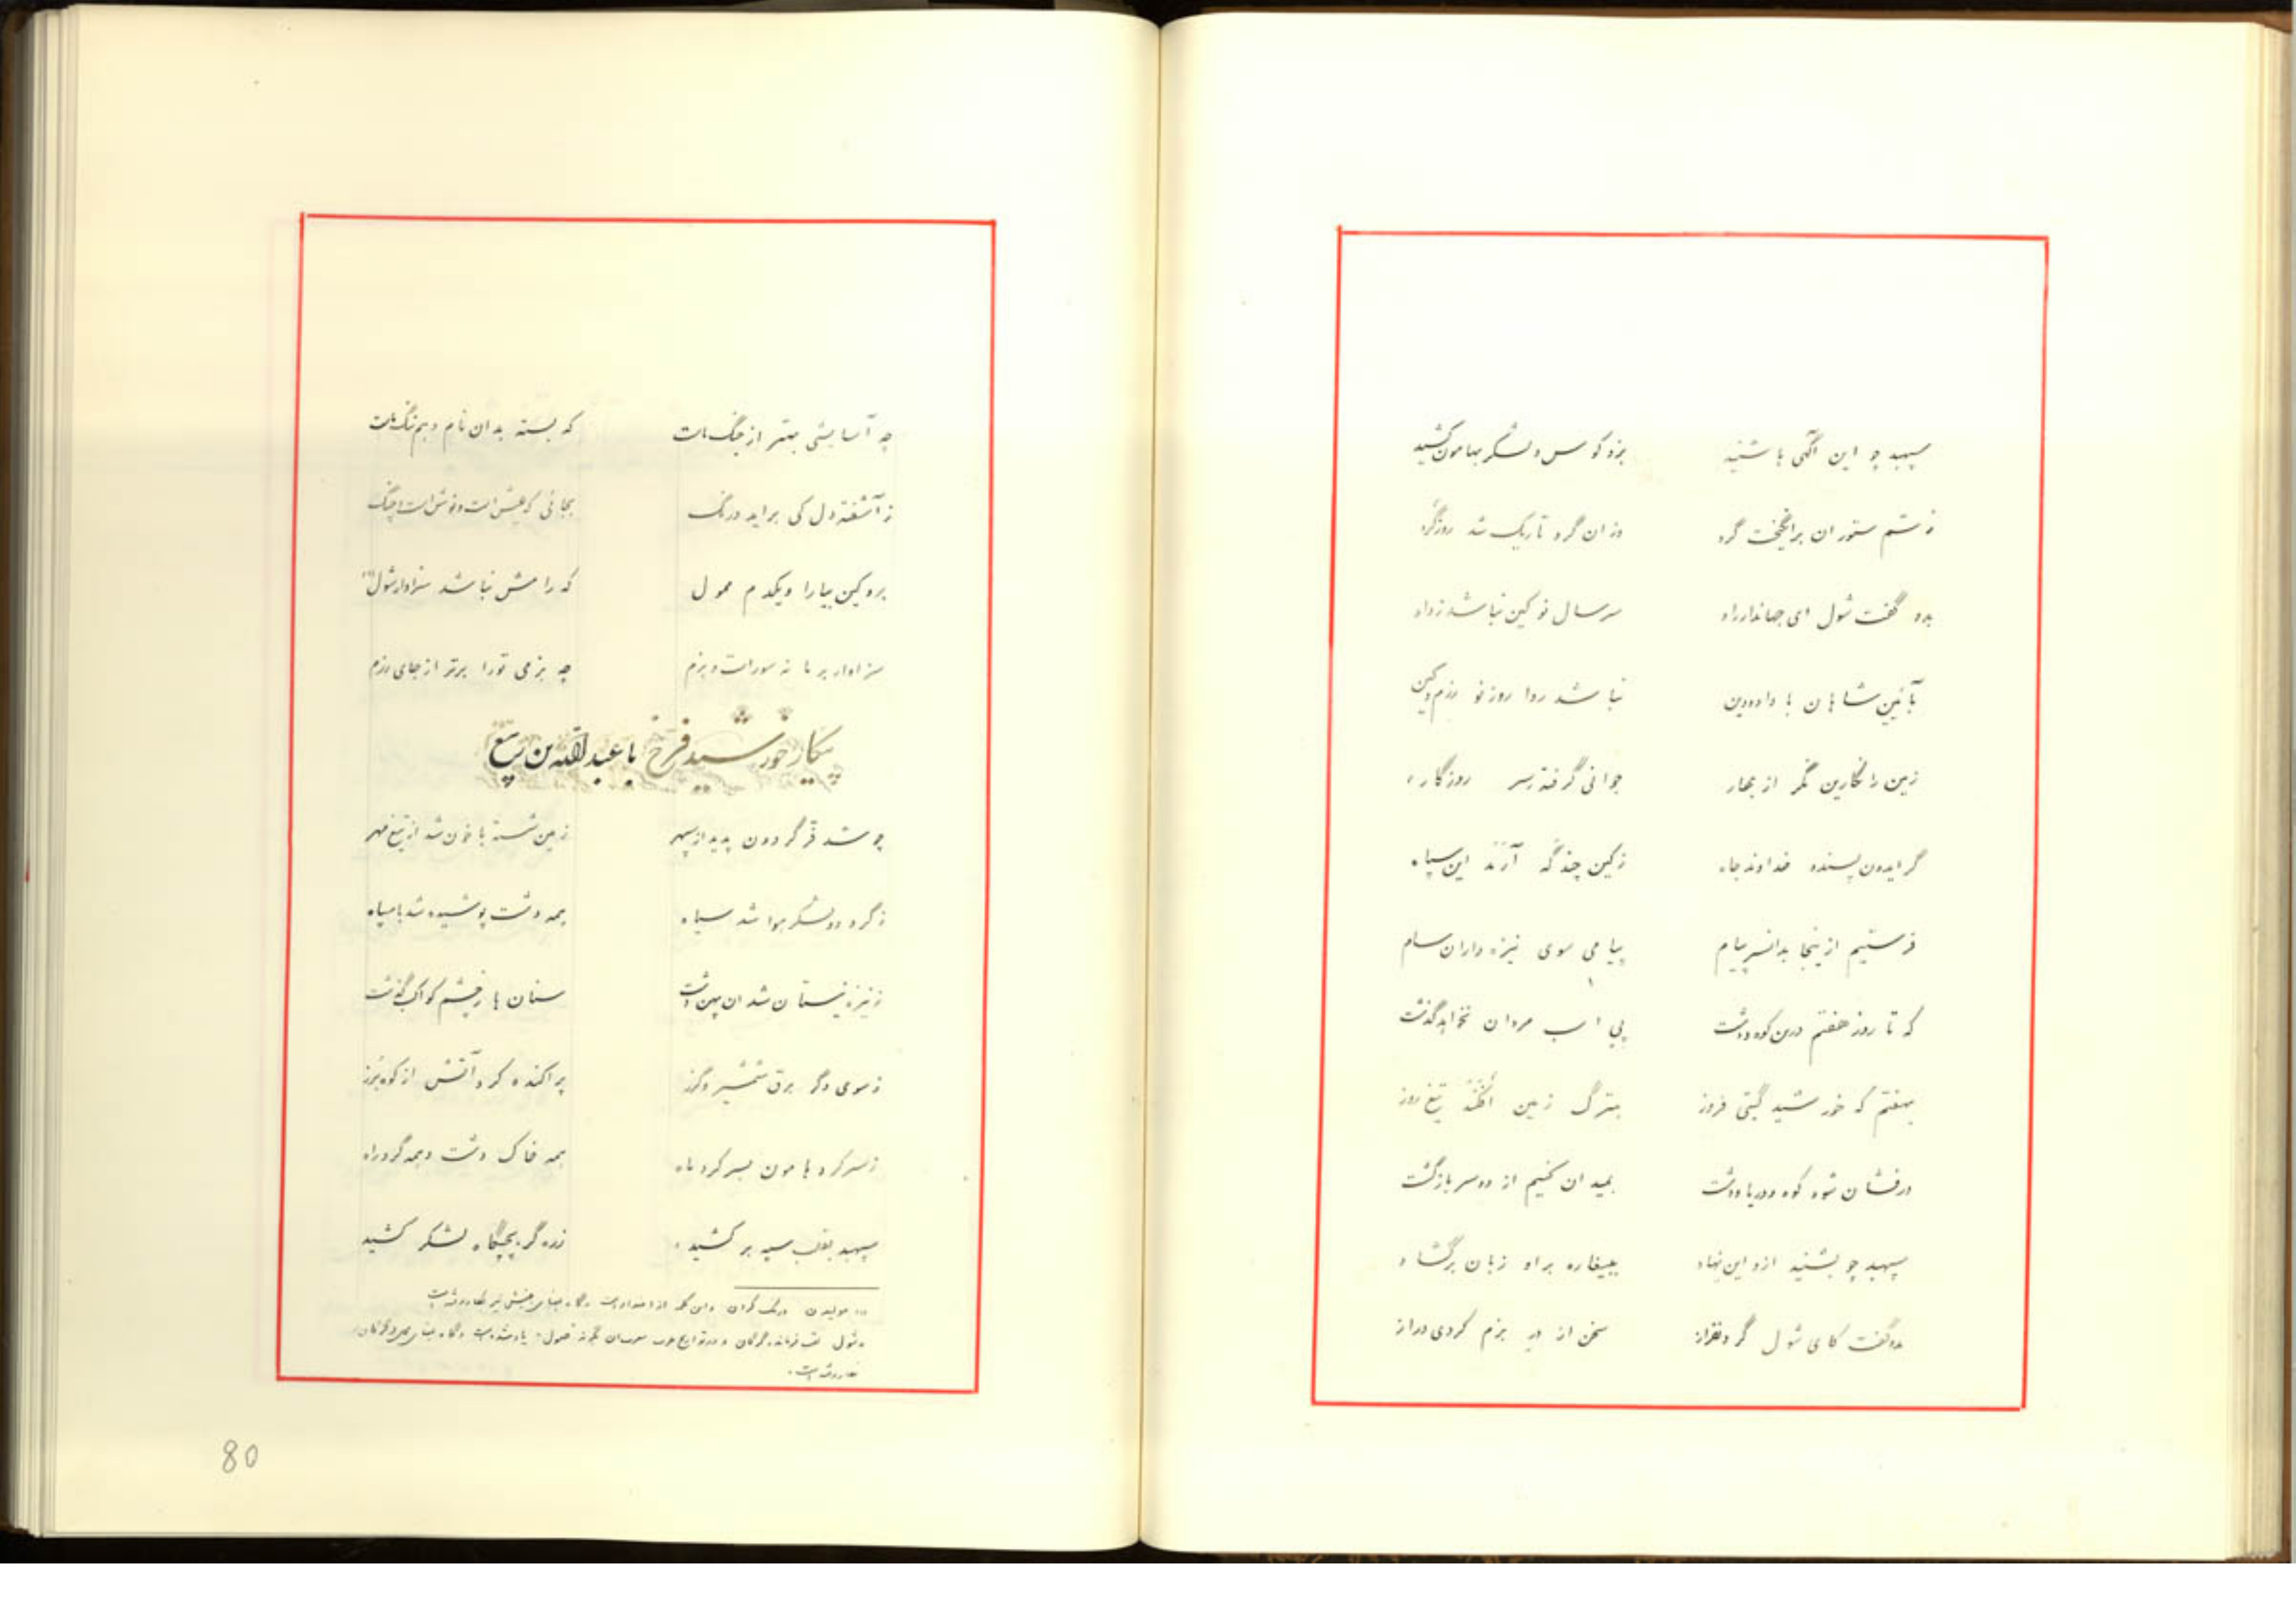 سپهبد چو این آگهی باشنید    بزد کوس و لشکر بهامون کشید
ز سم ستوران برانگیخت گرد    وزان گرد تاریک شد روزگرد
بدو گفت شول ای جهاندار راد    سر سال نو کین نباشد ز داد
بآئین شاهان با داد و دین    نباشد روا روز نو رزم و کین
زمین را نگارین نگر از بهار    جوانی گرفته ز سر روزگار
گر ایدون پسندد خداوند جاه    ز کین چندگه آرند این سپاه
فرستیم از اینجا بدانسر پیام    پیامی سوی نیزه داران سام
که تا روز هفتم درین کوه و دشت    پی اسب مردان نخواهد گذشت
بهفتم که خورشید گیتی فروز    بترگ زمین افکند تیغ روز
درفشان شود کوه و دریا و دشت    بمیدان کنیم از دو سر بازگشت
سپهبد چو بشنید ازو این نهاد    ببیغاره براو زبان برگشاد
بدو گفت کای شول گردنفراز    سخن از در بزم کردی دراز
چه آسایشی بهتر از جنگ ماست    که بسته بدان نام و هم ننگ ماست
ز آشفته دل کی براید درنگ    بجائی که عیش است و نوش است و چنگ
برو کین بیارا و یکدم مول    که رامش نباشد سزاوار شول (۱)
سزاوار بر ما نه سور است و بزم    چه بزمی تو را برتر از جای رزم
پیکار خورشید فرخ با عبدالله بن ربیع
چو شد فر گردون پدید از سپهر    زمین شسته با خون شد از تیغ مهر
ز گرد دو لشکر هوا شد سیاه    همه دشت پوشیده شد با سپاه
ز نیزه نیستان شد ان پهن دشت    سنان ها ز چشم کواکب گذشت
ز سوی دگر برق شمشیر و گرز    پراکنده کرد آتش از کوه برز
ز سر کرد هامون بسر کرد ماه    همه خاک دشت و همه گرد راه
سپهبد بقلب سپه بر کشید    زده گر بجنگاه لشکر کشید
(۱) مولیدن درنگ کردن و این کلمه از اضداد است و گاه بمعنای جنبش نیز بکار رفته است
و شول لقب فرمانده گرگان و در تواریخ عرب
بکار رفته است.
80